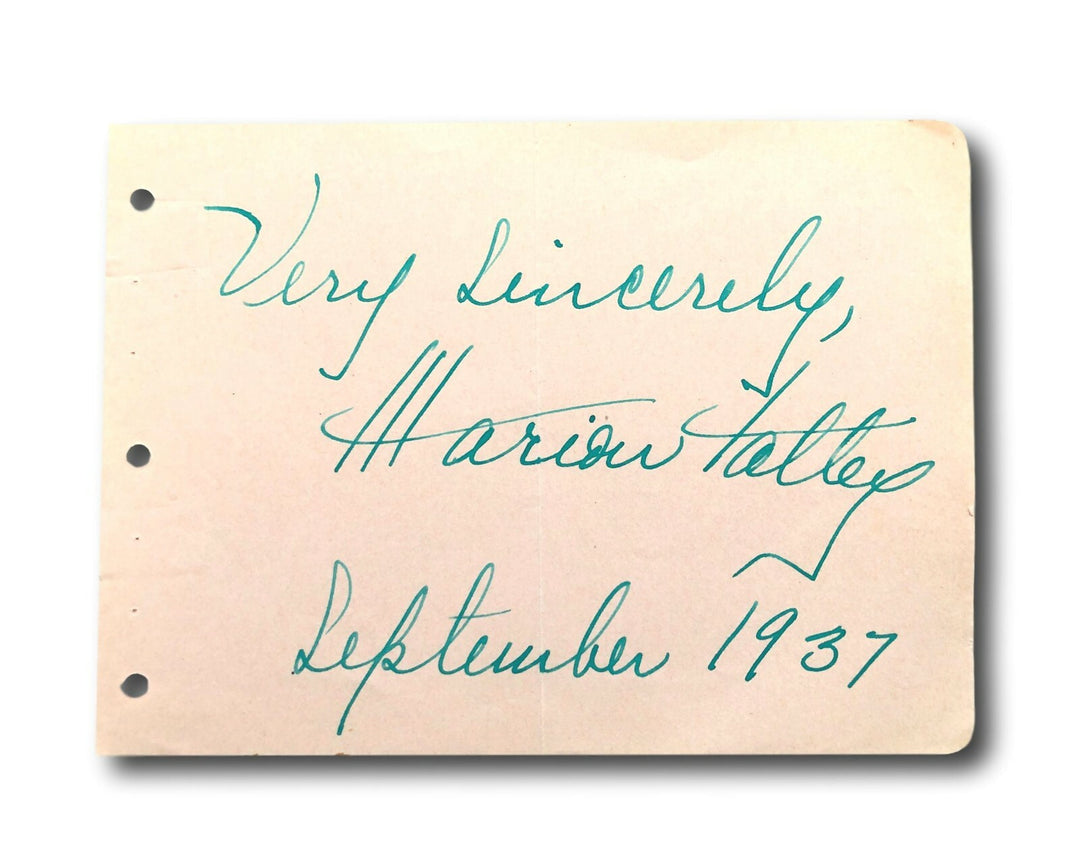 Very Sincerely,
Marion Talley
September 1937